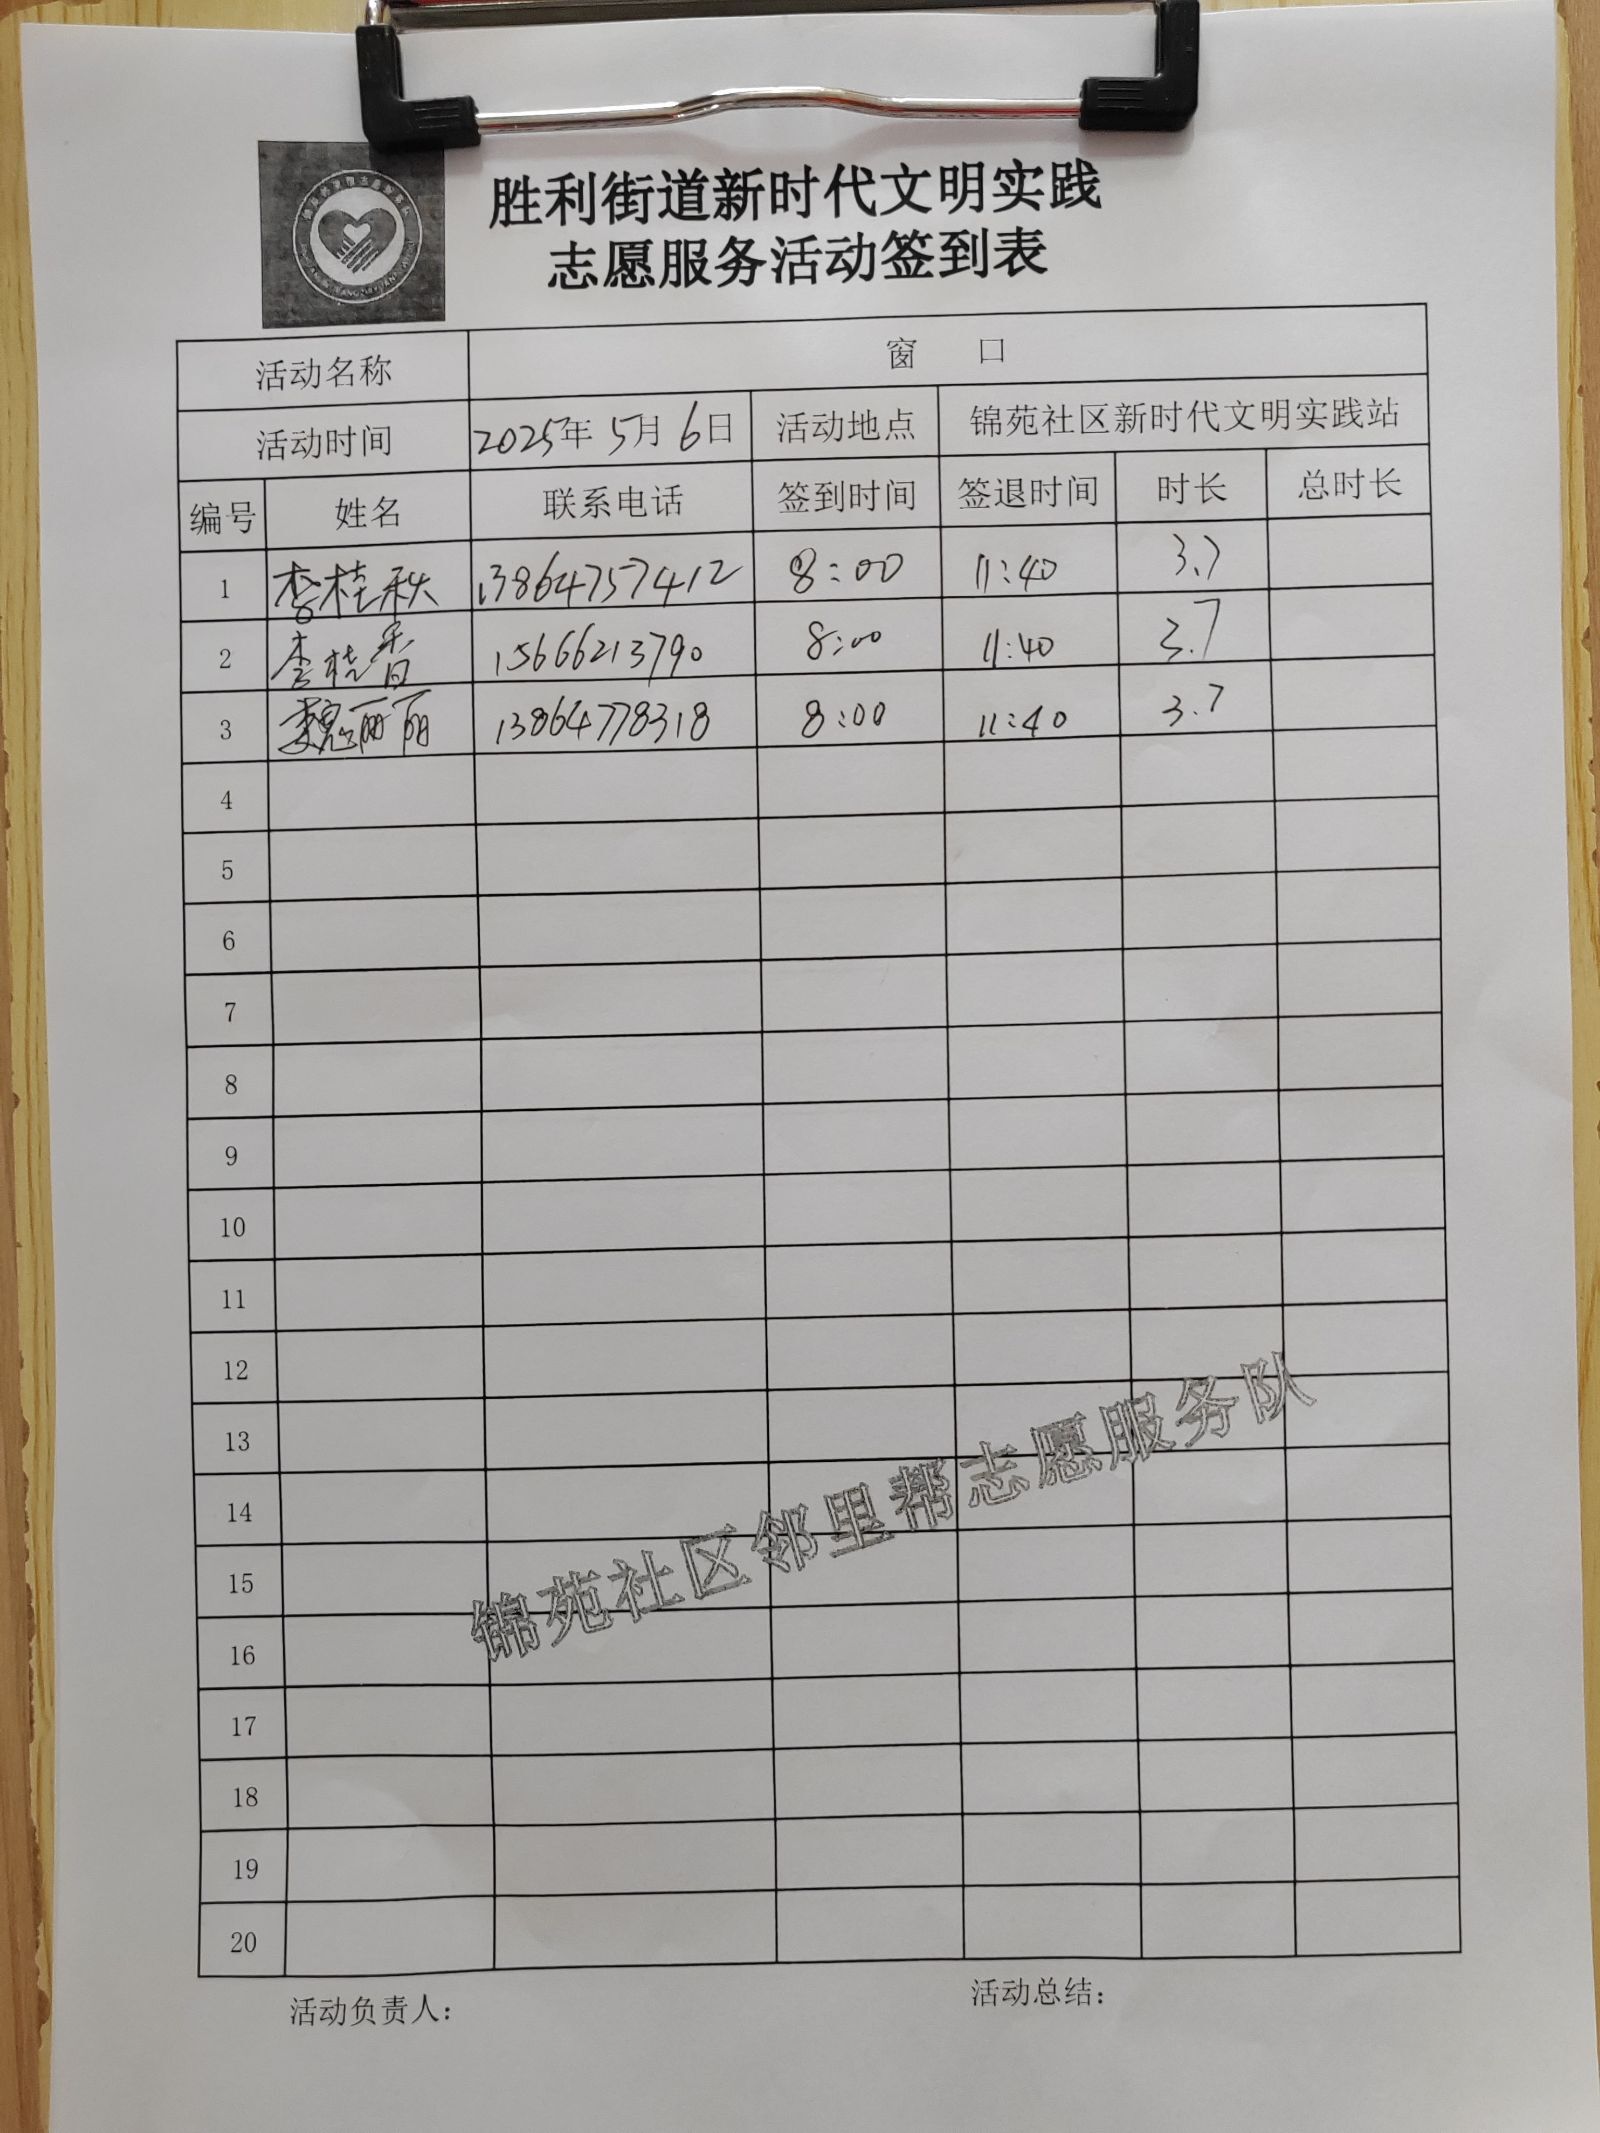 胜利街道新时代文明实践
志愿服务活动签到表
活动名称 窗 口
活动时间 2025年 5月 6日 活动地点 锦苑社区新时代文明实践站
编号 姓名 联系电话 签到时间 签退时间 时长 总时长
1 李桂秋 13864757412 8:00 11:40 3.7
2 李桂香 15666213790 8:00 11:40 3.7
3 魏丽丽 13864778318 8:00 11:40 3.7
4
5
6
7
8
9
10
11
12
13
14
15
16
17
18
19
20
锦苑社区邻里帮志愿服务队
活动负责人: 活动总结: